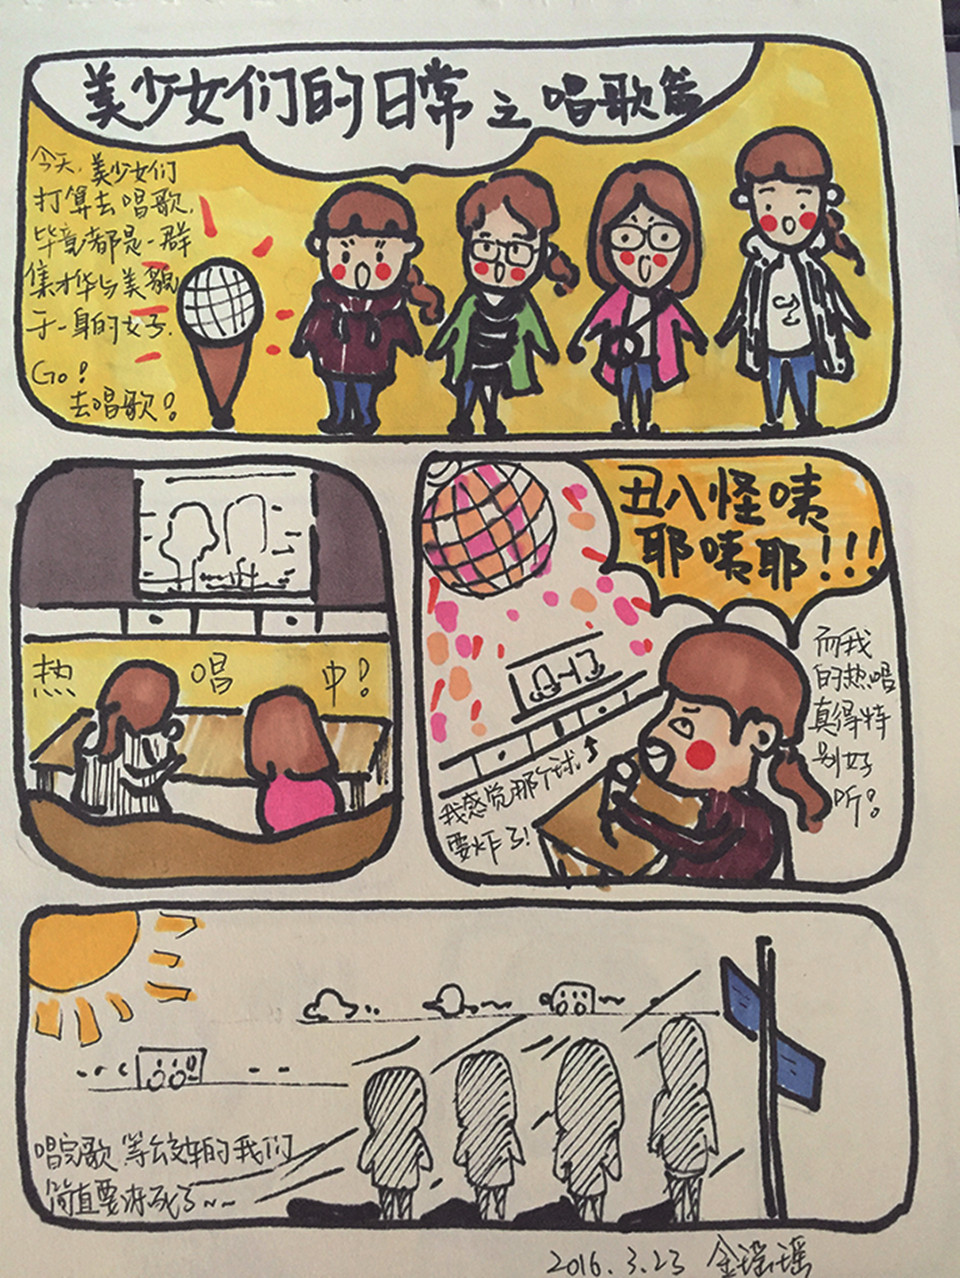 美少女们的日常之唱歌篇
今天,美少女们
打算去唱歌,
毕竟都是一群
集才华与美貌
于一身的女子.
Go!
去唱歌!
热唱中!
丑八怪咦
耶咦耶!!!
而我
的热唱
真得特
别好
听!
我感觉那个球
要炸了!
唱完歌等公交车的我们
简直要冻死了~~
2016.3.23 金瑶瑶